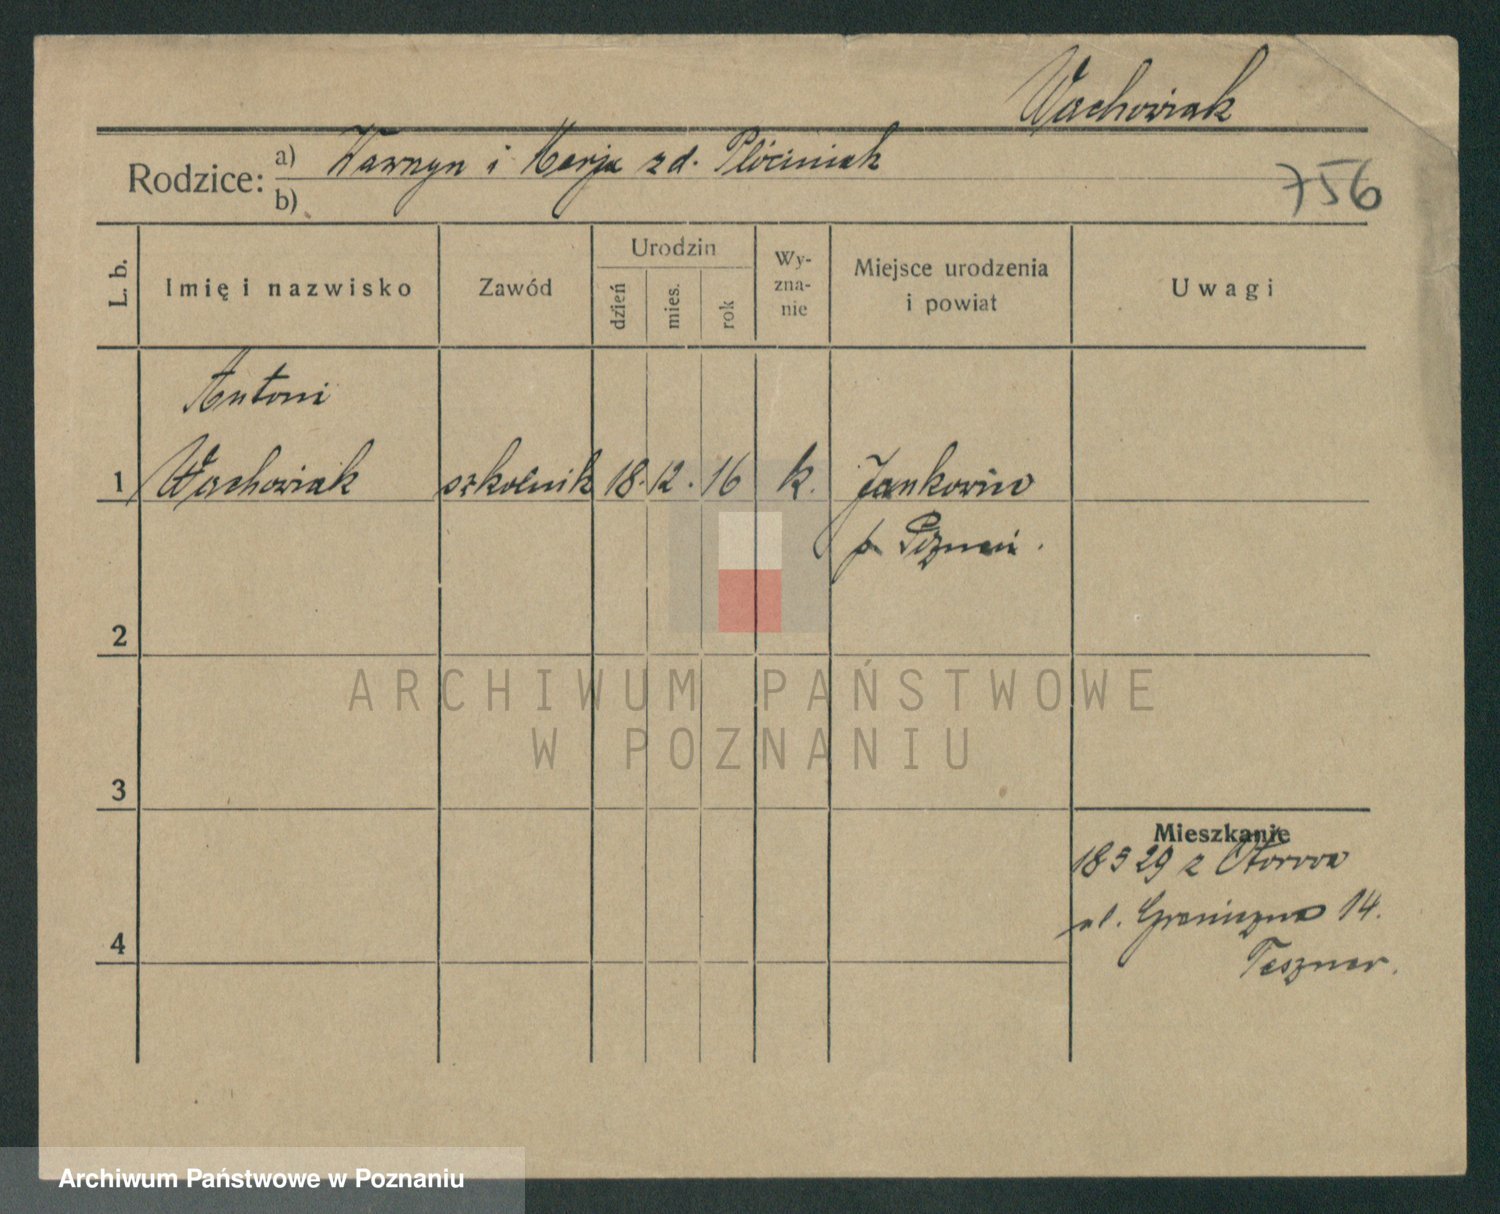 Wachowiak
Rodzice: a) Wawrzyn i Marja zd. Płóciniak
b)
756
L. b.
Imię i nazwisko
Zawód
Urodzin
dzień
mies.
rok
Wy-
zna-
nie
Miejsce urodzenia
i powiat
Uwagi
Antoni
1 Wachowiak szkolnik 18. 12. 16 k. Jankowice
p. Poznań.
2
3
4
Mieszkanie
18 5 29 z Otorowa
ul. Graniczna 14.
Teszner.
ARCHIWUM PAŃSTWOWE
W POZNANIU
Archiwum Państwowe w Poznaniu